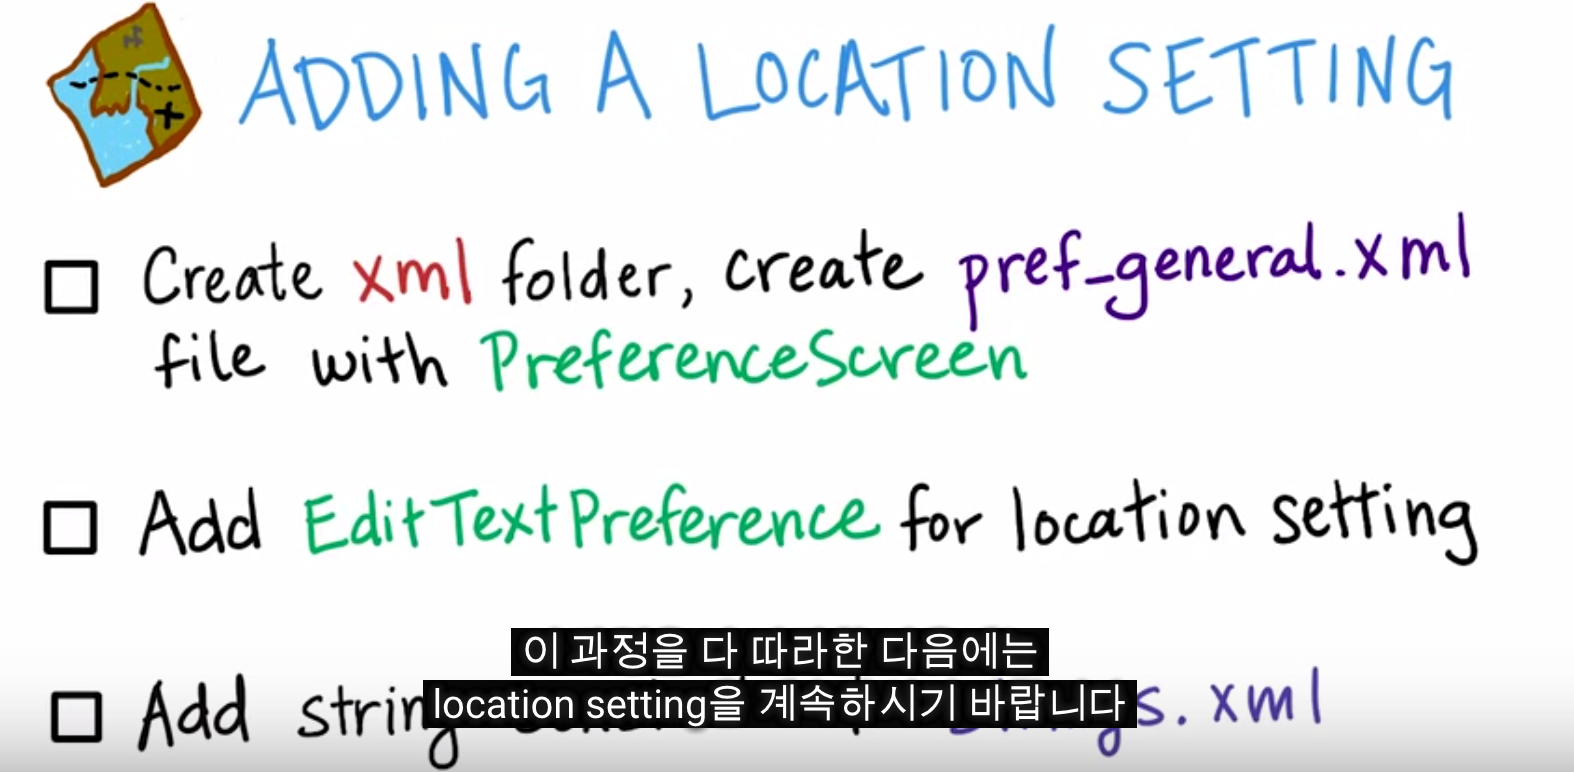 ADDING A LOCATION SETTING
Create xml folder, create pref_general.xml
file with PreferenceScreen
Add EditTextPreference for location setting
이 과정을 다 따라한 다음에는
location setting을 계속하시기 바랍니다
Add .xml